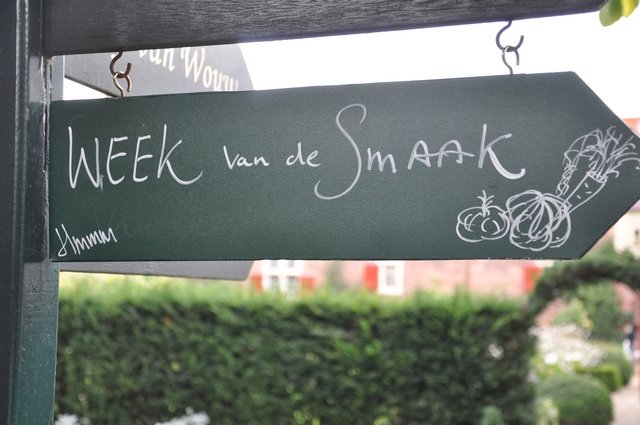 van Wouw
WEEK van de SMAAK
Hmmm